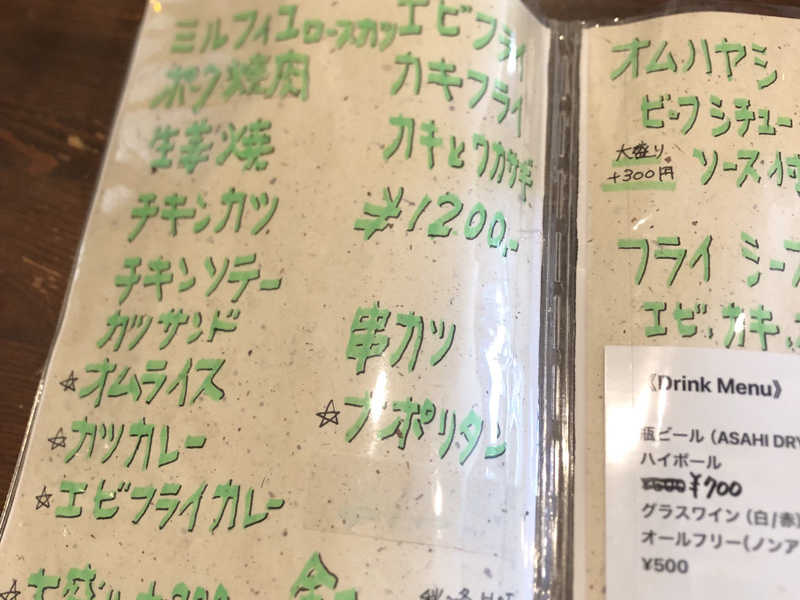 ミルフィユロースカツ
ポーク焼肉
生姜焼
チキンカツ
チキンソテー
カツサンド
☆オムライス
☆カツカレー
☆エビフライカレー
エビフライ
カキフライ
カキとワカサギ
¥1200,-
串カツ
☆ナポリタン
オムハヤシ
ビーフシチュー
大盛り
+300円
ソース付
フライ
エビ、カキ、
《Drink Menu》
瓶ビール (ASAHI DRY
ハイボール
¥700
グラスワイン (白/赤)
オールフリー(ノンア
¥500